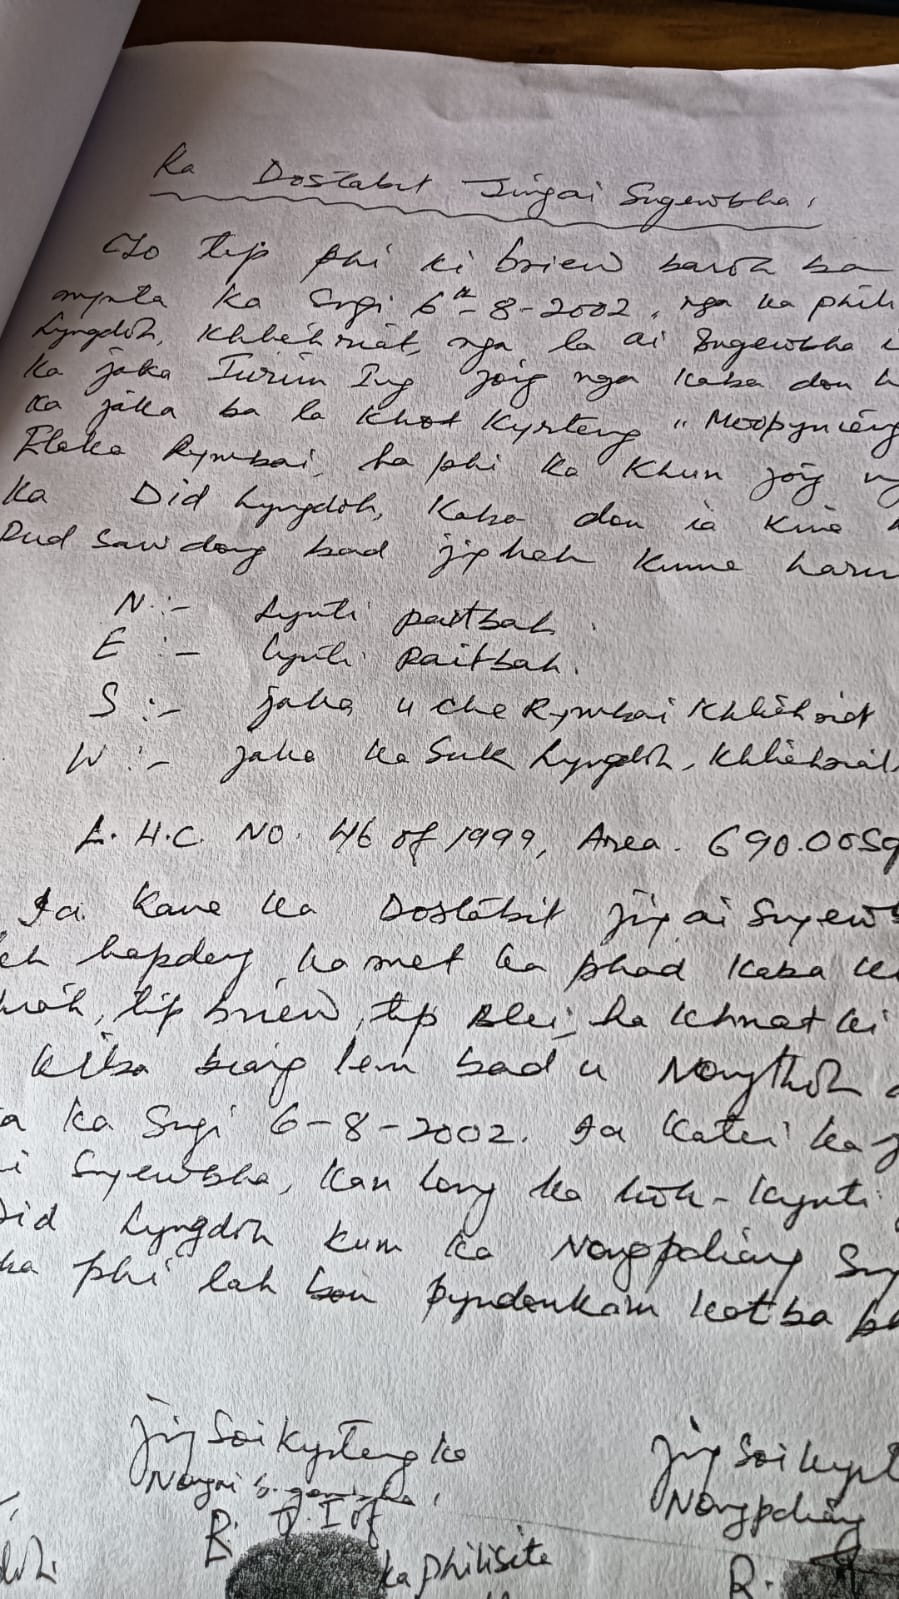 Ka Dostabit Jingai Sngewbha.
To tip phi ki briew baroh ba
mynta ka Sngi 6th-8-2002, nga ka phili
Lyngdoh, Khliehriat, nga la ai Sngewbha i
ka jaka Iurim Ing jong nga kaba don h
ka jaka ba la khot kyrteng "Moopyniéng
Elaka Rymbai, ha phi ka Khun jong ng
Ka Did Lyngdoh, Kaba don ia kine k
Pud Sawdong bad jipheh kume harum
N:- Lynti paitbah.
E :- Lynti Paitbah.
S :- jaka u che Rymbai Khliehriat
W :- jaka ka Suk Lyngdoh, Khliehriat
L.H.C. NO. 46 of 1999, Area. 690.00Sq
Ia kane ka Dostabit jingai Sngewb
leh hapdeng ka met ka phad kaba k
, tip briew, tip Blei, ha khmat ki
kiba biang lem bad u Nongthoh
ta ka Sngi 6-8-2002. Ia katei ka j
i Sngewbha, kan long ka hok-kynti
Did Lyngdoh kum ka Nongpdiang Sng
ka phi lah ban pyndonkam katba ph
jing Soi kyrteng ka
Nongai
R. T. I of
ka philisita
jing Soi kyrt
Nongpdiang
R.